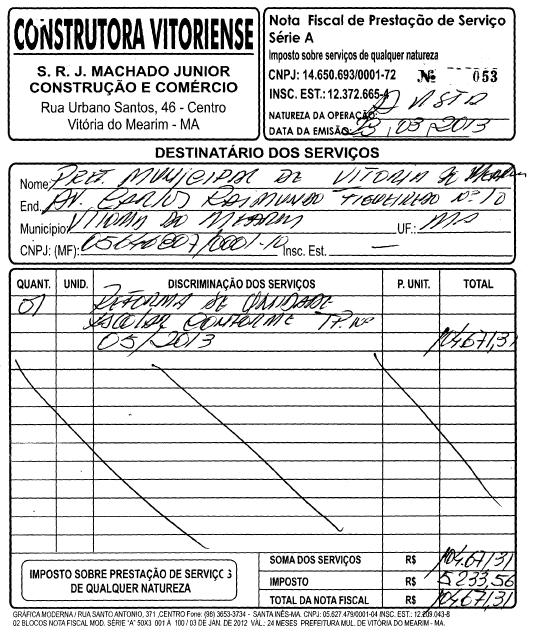 CONSTRUTORA VITORIENSE
S. R. J. MACHADO JUNIOR
CONSTRUÇÃO E COMÉRCIO
Rua Urbano Santos, 46 - Centro
Vitória do Mearim - MA
Nota Fiscal de Prestação de Serviço
Série A
Imposto sobre serviços de qualquer natureza
CNPJ: 14.650.693/0001-72 Nº 053
INSC. EST.: 12.372.665-4
NATUREZA DA OPERAÇÃO: A VISTA
DATA DA EMISSÃO: 23, 03, 2013
DESTINATÁRIO DOS SERVIÇOS
Nome: PREF. MUNICIPAL DE VITORIA DO MEARIM
End. AV. CARLOS RAIMUNDO FIGUEIREDO Nº 10
Município: VITORIA DO MEARIM UF.: MA
CNPJ: (MF): 05646807/0001-10 Insc. Est. —
QUANT. UNID. DISCRIMINAÇÃO DOS SERVIÇOS P. UNIT. TOTAL
01 REFORMA DE UNIDADE
ESCOLAR CONFORME TP. Nº
05/2013 104.671,31
SOMA DOS SERVIÇOS R$ 104.671,31
IMPOSTO R$ 5.233,56
TOTAL DA NOTA FISCAL R$ 104.671,31
IMPOSTO SOBRE PRESTAÇÃO DE SERVIÇOS
DE QUALQUER NATUREZA
GRÁFICA MODERNA / RUA SANTO ANTONIO, 371 ,CENTRO Fone: (98) 3653-3734 - SANTA INÊS-MA. CNPJ: 05.627.479/0001-04 INSC. EST.: 12.209.043-8
02 BLOCOS NOTA FISCAL MOD. SÉRIE "A" 50X3 001 A 100 / 03 DE JAN. DE 2012 VAL.: 24 MESES PREFEITURA MUL. DE VITÓRIA DO MEARIM - MA.